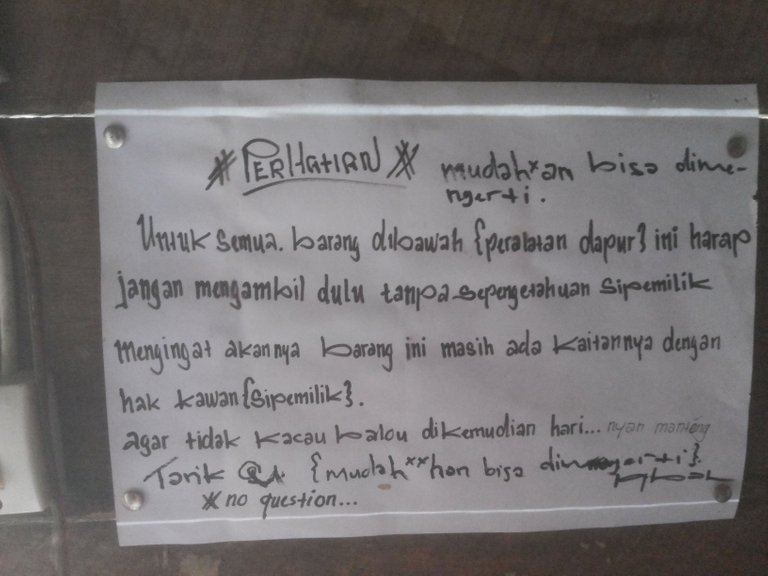 * PERHATIAN * mudah×an bisa dime-
ngerti.
Untuk semua. barang dibawah {peralatan dapur} ini harap
jangan mengambil dulu tanpa sepengetahuan sipemilik
mengingat akannya barang ini masih ada kaitannya dengan
hak kawan {sipemilik}.
agar tidak kacau balou dikemudian hari... nyan
Tarik {mudah××han bisa
* no question...